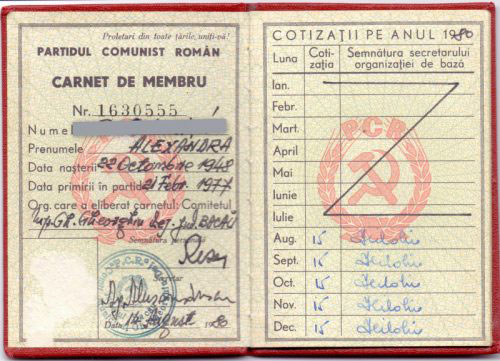 Proletari din toate țările, uniți-vă!
PARTIDUL COMUNIST ROMÂN
CARNET DE MEMBRU
Nr. 1630555
Nume
Prenumele ALEXANDRA
Data nașterii 22 Octombrie 1948
Data primirii în partid 21 Febr. 1977
Org. care a eliberat carnetul: Comitetul
Gh. Gheorghiu Dej jud. BACĂU
Semnătura personală
Secretar
Data 14 August 1980
COTIZAȚII PE ANUL 1980
Luna Cotizația Semnătura secretarului organizației de bază
Ian.
Febr.
Mart.
April
Mai
Iunie
Iulie
P.C.R.
Aug. 15
Sept. 15
Oct. 15
Nov. 15
Dec. 15